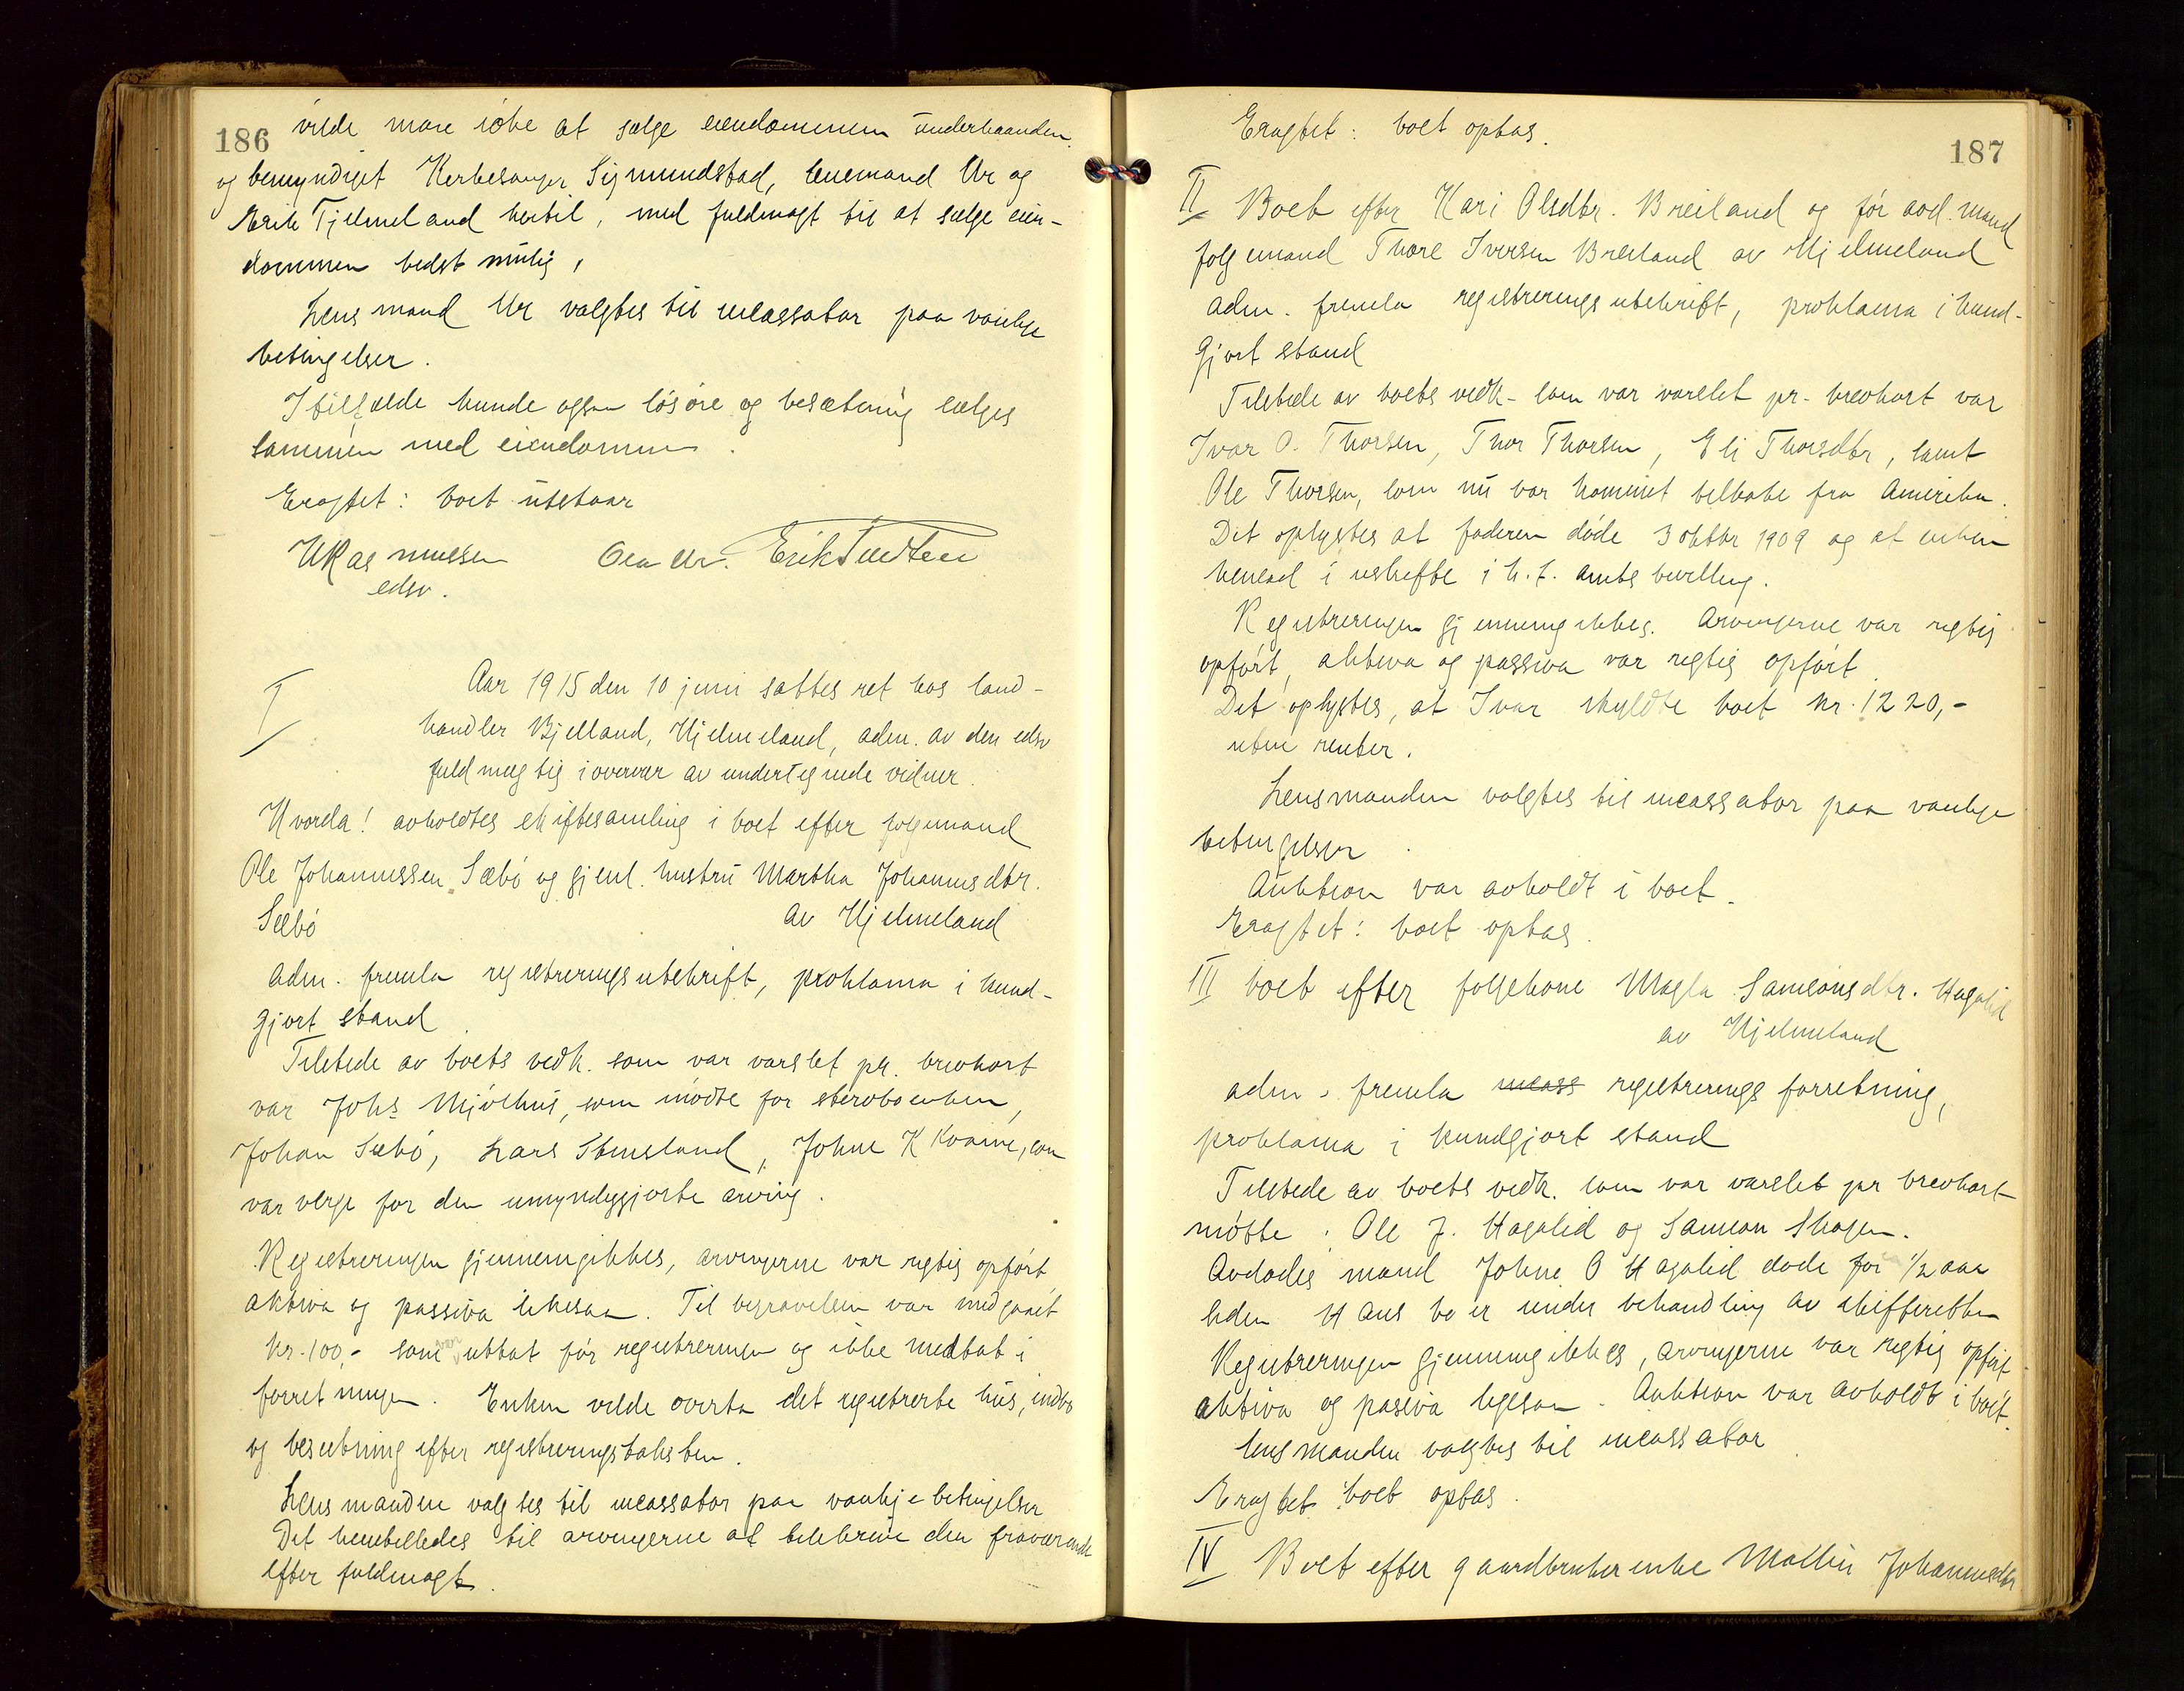 186
vilde man ikke at sælge eiendommen underhaanden
og bemyndiget Kirkesanger Sigmundstad, lensmand Ur og
Erik Tjelmeland hertil, med fuldmagt til at sælge eien-
dommen bedst mulig,
Lensmand Ur valgtes til incassator paa vanlige
betingelser.
I tilfælde kunde ogsaa løsøre og besætning sælges
sammen med eiendommen.
Eragtet: boet utstaar
URasmussen Ola Ur. Erik Tuedten
edsv.
I
Aar 1915 den 10 juni sattes ret hos land-
handler Bjelland, Hjelmeland, adm. av den edsv
fuldmægtig i overvær av undertegnede vidner
Hvorda! avholdtes skiftesamling i boet efter folgemand
Ole Johannessen Sæbø og gjenl. hustru Martha Johannesdtr.
Sæbø av Hjelmeland
Adm. fremla registreringsutskrift, proklama i kund-
gjort stand.
Tilstede av boets vedk. som var varslet pr. brevkort
var Johs Mjølhus, som mødte for sterboenken,
Johan Sæbø, Lars Steinsland, Johne K Kvame, som
var verge for den umyndiggjorte arving.
Registreringen gjennemgikkes, arvingerne var rigtig opført
aktiva og passiva likesaa. Til begravelsen var medgaaet
kr. 100,- som var uttat før registreringen og ikke medtat i
forretningen. Enken vilde overta det registrerte hus, indbo
og besætning efter registreringstaksten.
Lensmanden valgtes til incassator paa vanlige betingelser
Det henstilledes til arvingerne at tilskrive den fraværende
efter fuldmagt.
187
Eragtet: boet optas.
II Boet efter Kari Olsdtr. Breiland og før avd. mand
folgemand Thore Iversen Breiland av Hjelmeland
adm. fremla registreringsutskrift, proklama i kund-
gjort stand
Tilstede av boets vedk- som var varslet pr- brevkort var
Ivar O. Thorsen, Thor Thorsen, Eli Thorsdtr, samt
Ole Thorsen, som nu var kommet tilbake fra Amerika.
Det oplystes at faderen døde 3 oktbr 1909 og at enken
hensad i uskifte i h. t. amts bevilling.
Registreringen gjennemgikkes. Arvingerne var rigtig
opført, aktiva og passiva var rigtig opført.
Det oplystes, at Ivar skyldte boet kr. 1220,-
uten renter.
Lensmanden valgtes til incassator paa vanlige
betingelser.
Auktion var avholdt i boet.
Eragtet: boet optas.
III boet efter folgekone Magla Samsonsdtr. Hagalid
av Hjelmeland
adm. fremla incass registrerings forretning,
proklama i kundgjort stand
Tilstede av boets vedk. som var varslet pr brevkort
møtte: Ole J. Hagalid og Samson Skogen.
Avdødes mand Johne O Hagalid døde for 1/2 aar
siden Hans bo er under behandling av skifteretten
Registreringen gjennemgikkes, arvingerne var rigtig opført
aktiva og passiva ligesaa. Auktion var avholdt i boet.
lensmanden valgtes til incassator
Eragtet boet optas.
IV Boet efter gaardbruker enke Mallin Johannesdtr